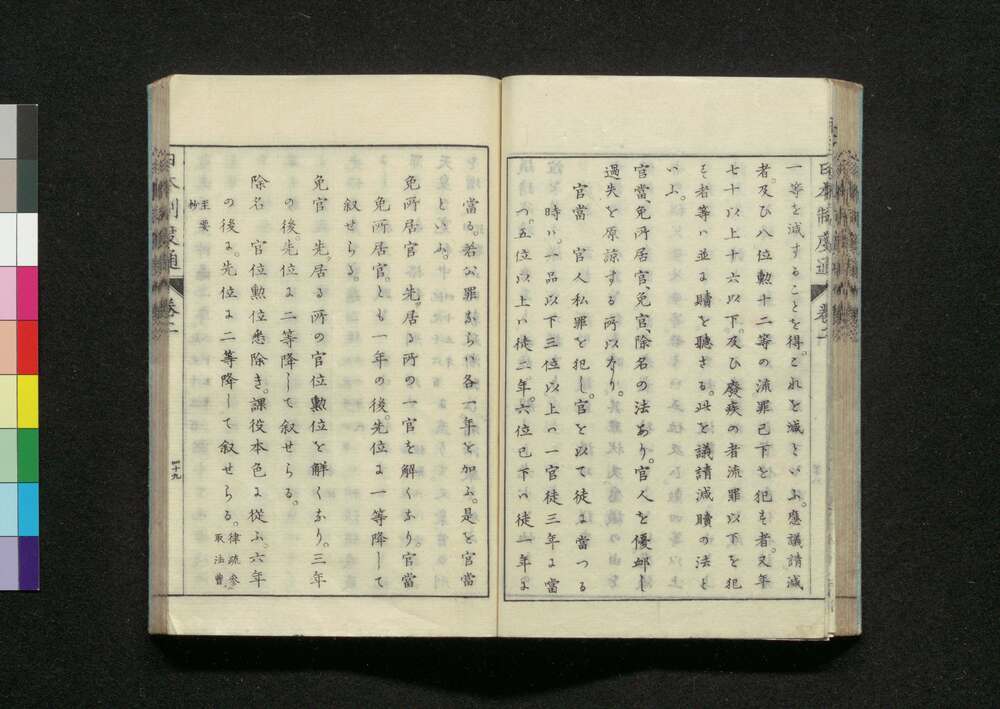 一等を減することを得。これを減といふ。應議請減
者。及ひ八位勲十二等の流罪已下を犯す者。又年
七十以上十六以下。及ひ廢疾の者流罪以下を犯
す者等ハ並に贖を聽さる。此を議請減贖の法と
いふ。
官當、免所居官、免官、除名の法あり。官人を優邺し
過失を原諒する所以なり。
官當 官人私罪を犯し。官を以て徒に當つる
時ハ。一品以下三位以上ハ一官徒三年に當
つ。五位以上ハ徒二年。六位已下ハ徒一年に
日本制度通 卷二
當る。若公罪ならハ各一年を加ふ。是を官當
といふ。
免所居官 先。居る所の一官を解くなり。官當
免所居官。とも一年の後。先位に一等降して
叙せらる。
免官 先。居る所の官位勲位を解くなり。三年
の後。先位に二等降して叙せらる。
除名 官位勲位悉除き。課役本色に從ふ。六年
の後に。先位に二等降して叙せらる。律疏參取法曹
至要抄
日本制度通 卷二
四十九